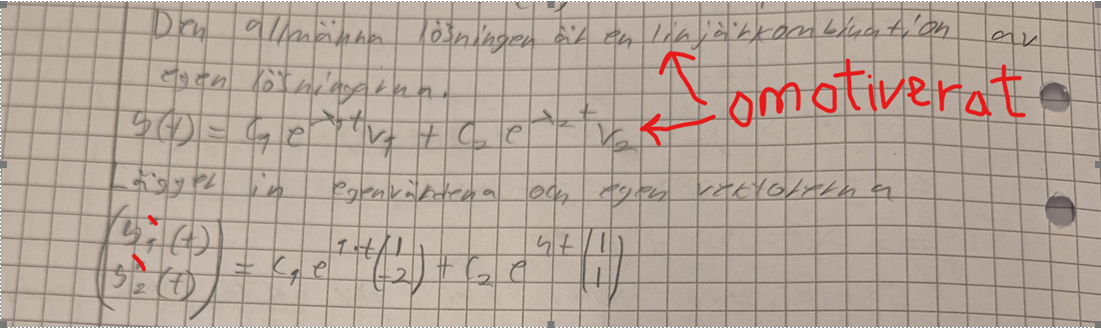 Den allmänna lösningen är en linjärkombination av
egen lösningarna.
omotiverat
y(t) = c₁ e^λ₁t v₁ + c₂ e^λ₂t v₂
Lägger in egenvärdena och egen vektorerna
(y₁(t) y₂(t)) = c₁ e^1·t (1 -2) + c₂ e^4t (1 1)